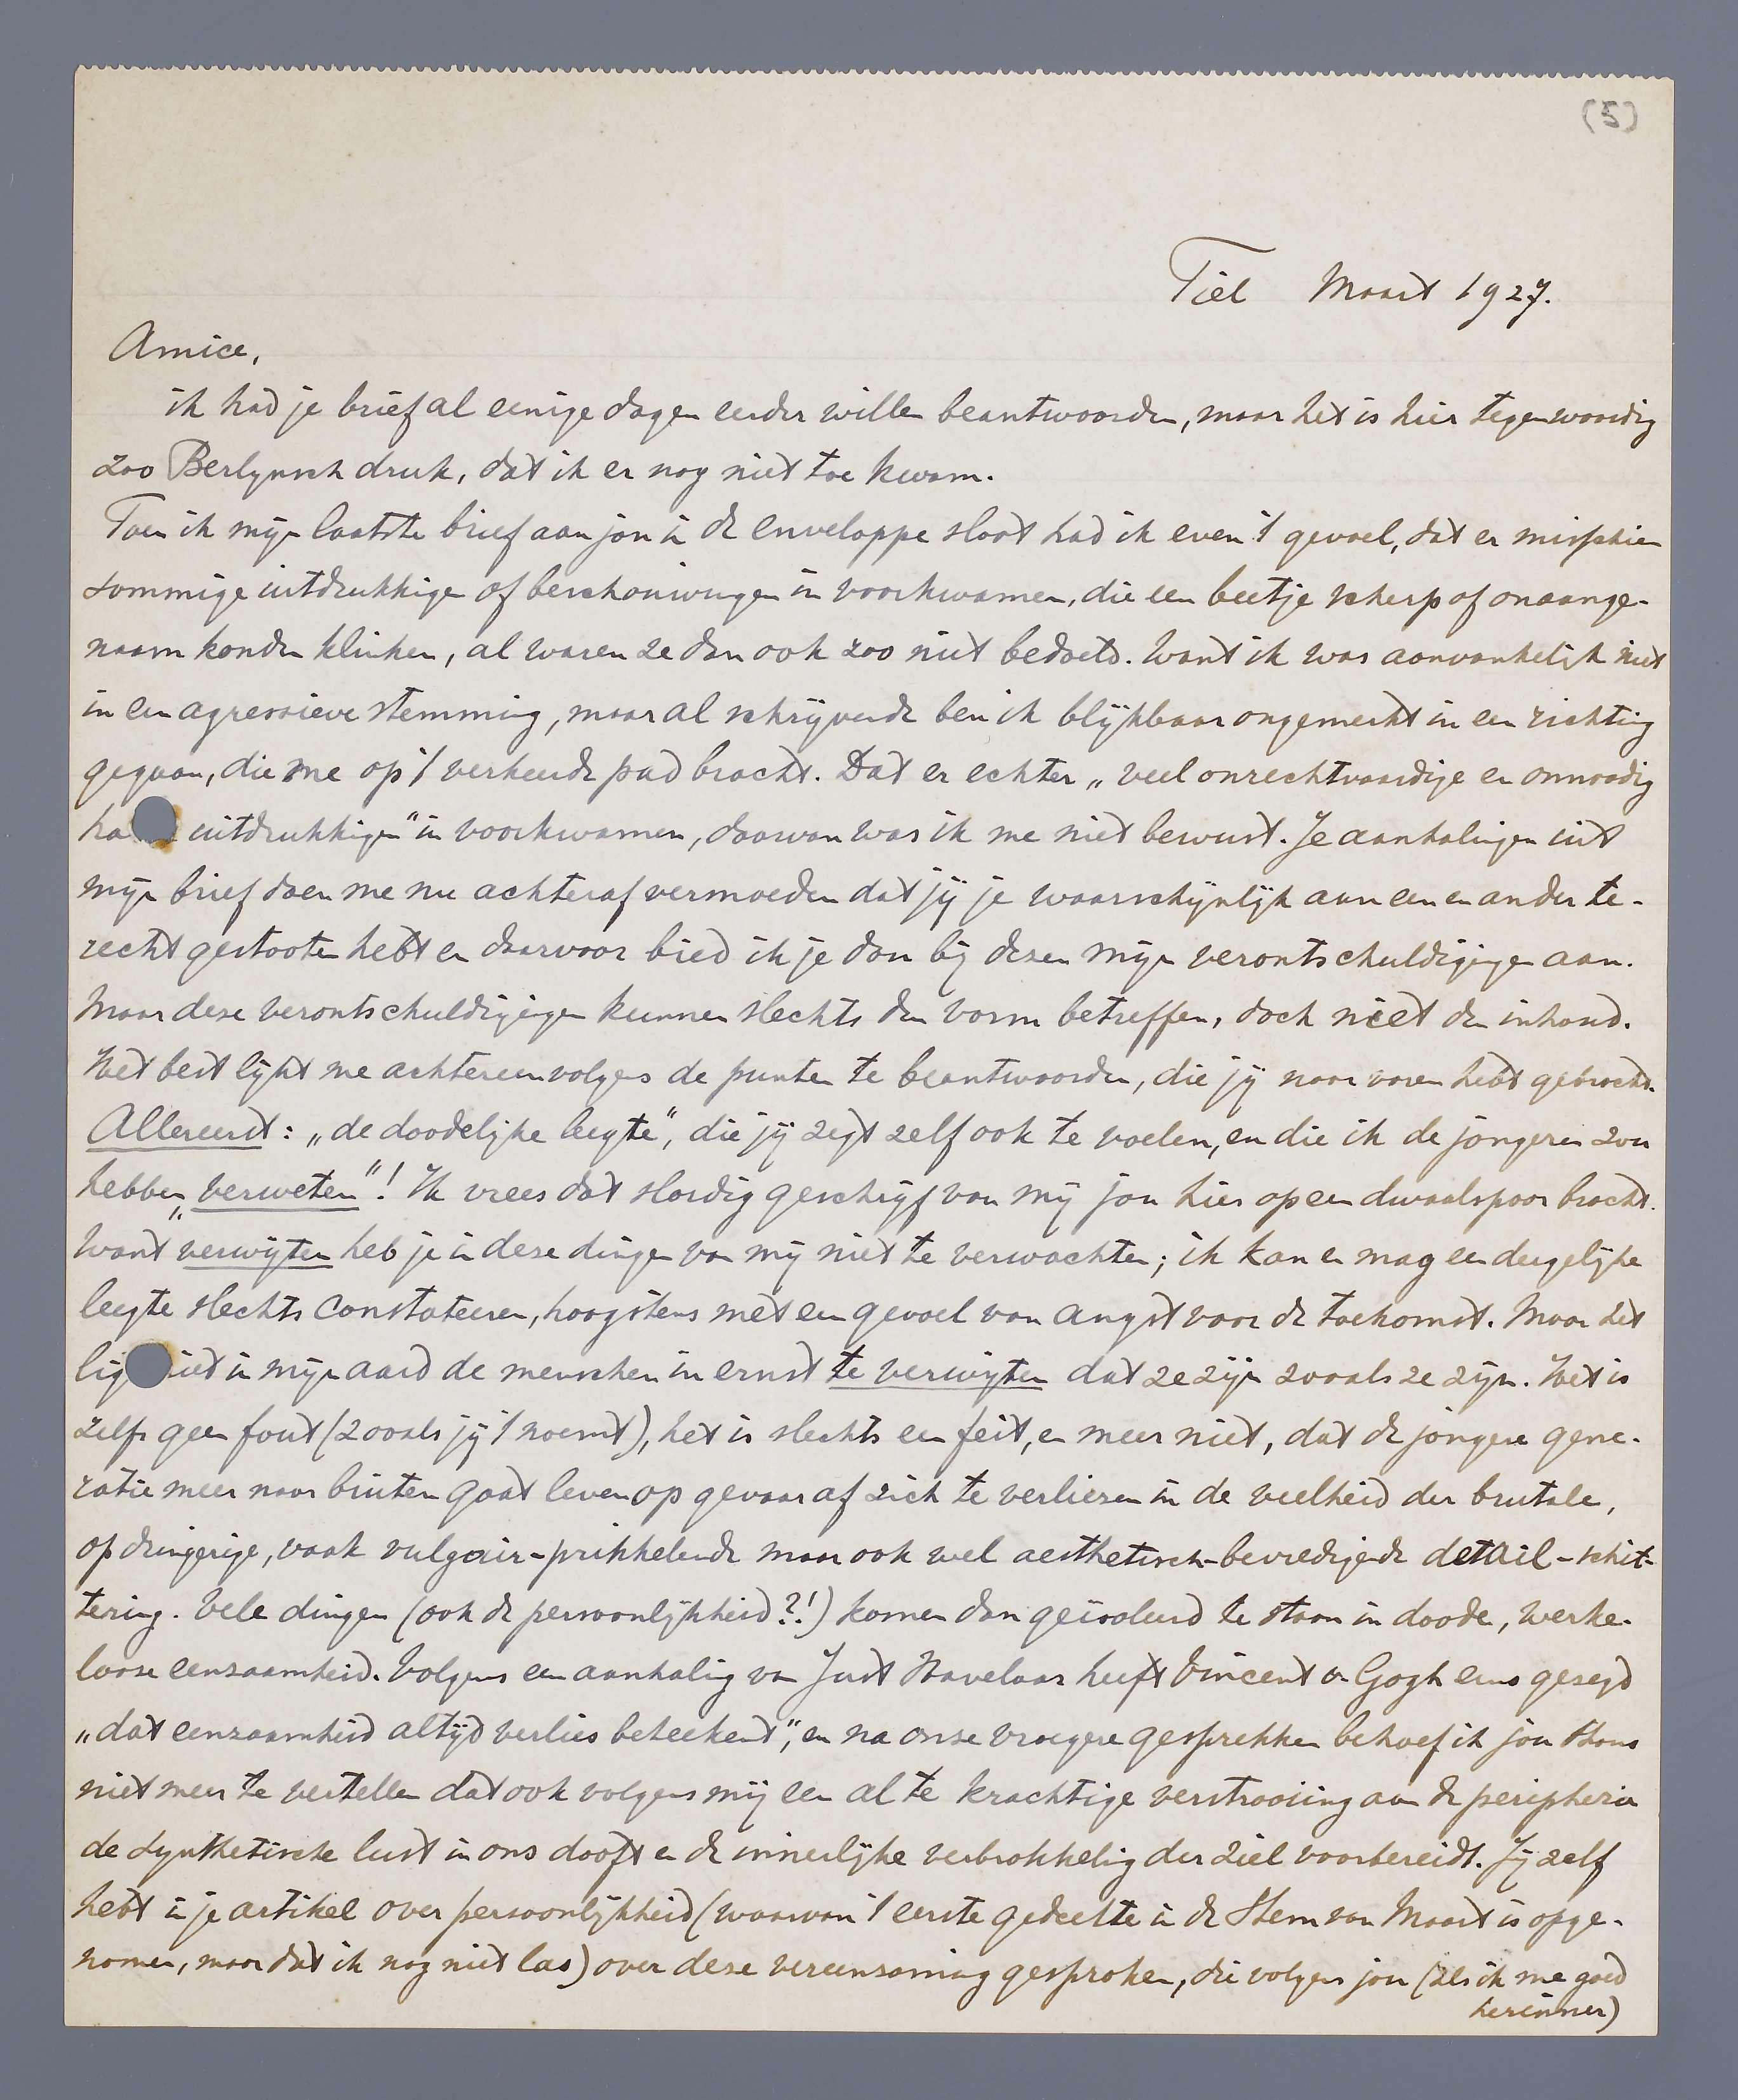 (5)
Tiel Maart 1927.
Amice,
ik had je brief al eenige dagen eerder willen beantwoorden, maar het is hier tegenwoordig
zoo Berlynsch druk, dat ik er nog niet toe kwam.
Toen ik mijn laatste brief aan jou in de enveloppe sloot had ik even 't gevoel, dat er misschien
sommige uitdrukkingen of beschouwingen in voorkwamen, die een beetje scherp of onaange-
naam konden klinken, al waren ze dan ook zoo niet bedoeld. Want ik was aanvankelijk niet
in een agressieve stemming, maar al schrijvende ben ik blijkbaar ongemerkt in een richting
gegaan, die me op 't verkeerde pad bracht. Dat er echter „veel onrechtvaardige en onnoodig
ha uitdrukkingen" in voorkwamen, daarvan was ik me niet bewust. Je aanhalingen uit
mijn brief doen me nu achteraf vermoeden dat jij je waarschijnlijk aan een en ander te-
recht gestooten hebt en daarvoor bied ik je dan bij dezen mijn verontschuldigingen aan.
Maar deze verontschuldigingen kunnen slechts den vorm betreffen, doch niet den inhoud.
Het best lijkt me achtereenvolgens de punten te beantwoorden, die jij naar voren hebt gebracht.
Allereerst: „de doodelijke leegte", die jij zegt zelf ook te voelen, en die ik de jongeren zou
hebben „verweten"! Ik vrees dat slordig geschrijf van mij jou hier op een dwaalspoor bracht.
Want verwijten heb je in deze dingen van mij niet te verwachten; ik kan en mag een dergelijke
leegte slechts constateeren, hoogstens met een gevoel van angst voor de toekomst. Maar het
lig iet in mijn aard de menschen in ernst te verwijten dat ze zijn zooals ze zijn. Het is
zelfs geen fout (zooals jij 't noemt), het is slechts een feit, en meer niet, dat de jongere gene-
ratie meer naar buiten gaat leven op gevaar af zich te verliezen in de veelheid der brutale,
opdringerige, vaak vulgair-prikkelende maar ook wel aesthetisch-bevredigende detail-schit-
tering. Vele dingen (ook de persoonlijkheid?!) komen dan geïsoleerd te staan in doode, werke-
looze eenzaamheid. Volgens een aanhaling van Just Havelaar heeft Vincent v. Gogh eens gezegd
„dat eenzaamheid altijd verlies beteekend", en na onze vroegere gesprekken behoef ik jou thans
niet meer te vertellen dat ook volgens mij een al te krachtige verstrooiing aan de peripherie
de synthetische lust in ons dooft en de innerlijke verbrokkeling der ziel voorbereidt. Jij zelf
hebt in je artikel over persoonlijkheid (waarvan 't eerste gedeelte in de Stem van Maart is opge-
nomen, maar dat ik nog niet las) over deze vereenzaming gesproken, die volgens jou (als ik me goed
herinner)